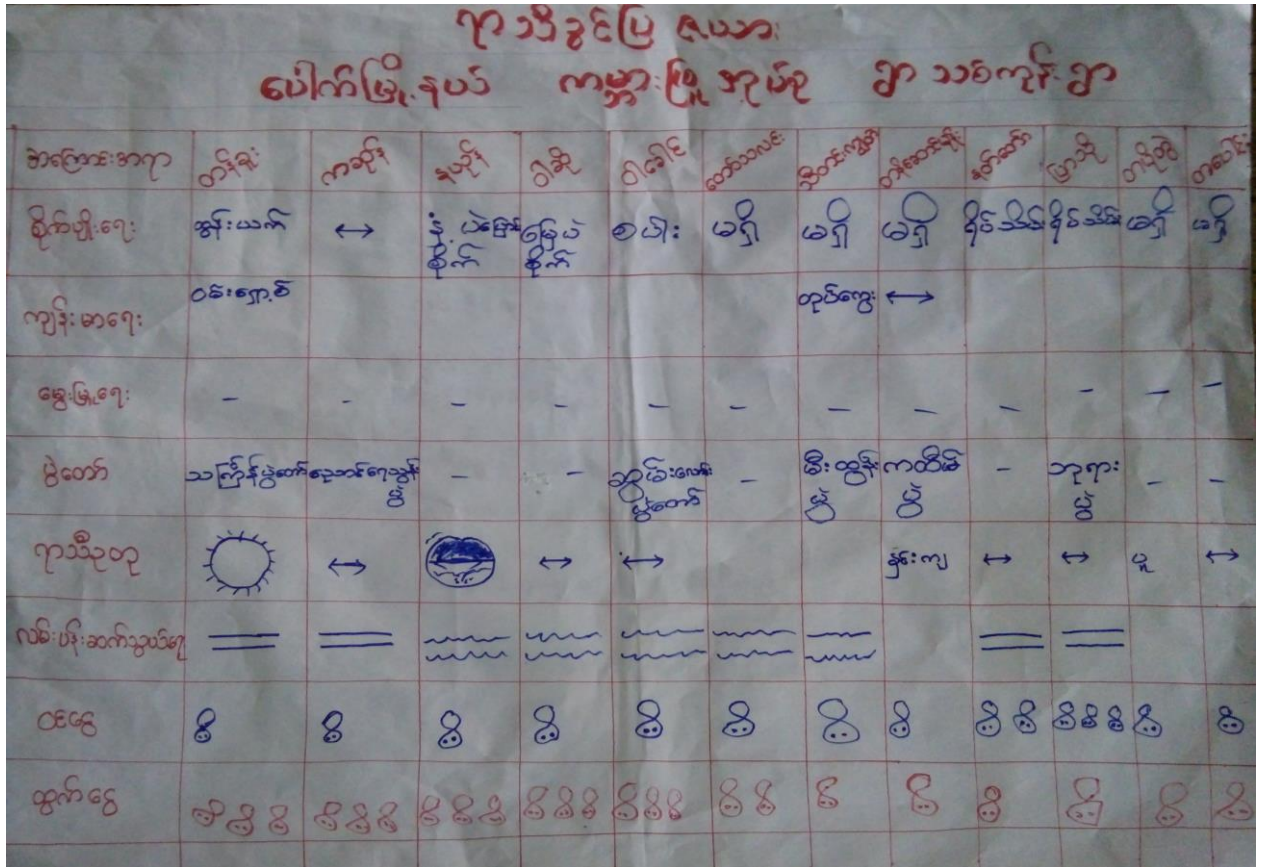 ရာသီခွင်ပြ ဇယား
ပေါက်မြို့နယ် ကမ္ဘာဖြူ အုပ်စု ရွာသစ်ကုန်းရွာ
အကြောင်းအရာ တန်ခူး ကဆုန် နယုန် ဝါဆို ဝါခေါင် တော်သလင်း သီတင်းကျွတ် တန်ဆောင်မုန်း နတ်တော် ပြာသို တပို့တွဲ တပေါင်း
စိုက်ပျိုးရေး ထွန်းယက် ↔ နှံ့ ပဲ စိုက် မြေပဲ စိုက် စပါး မရှိ မရှိ မရှိ ရိတ်သိမ်း ရိတ်သိမ်း မရှိ မရှိ
ကျန်းမာရေး ဝမ်းလျှော တုပ်ကွေး ↔
မွေးမြူရေး - - - - - - - - - - - -
ပွဲတော် သင်္ကြန်ပွဲတော် ညောင်ရေသွန်းပွဲ - - ဆွမ်းလောင်းပွဲတော် - မီးထွန်းပွဲ ကထိန်ပွဲ - ဘုရားပွဲ - -
ရာသီဥတု ↔ ↔ ↔ နှင်းကျ ↔ ↔ ပူ ↔
လမ်းပန်းဆက်သွယ်ရေး
ဝင်ငွေ
ထွက်ငွေ